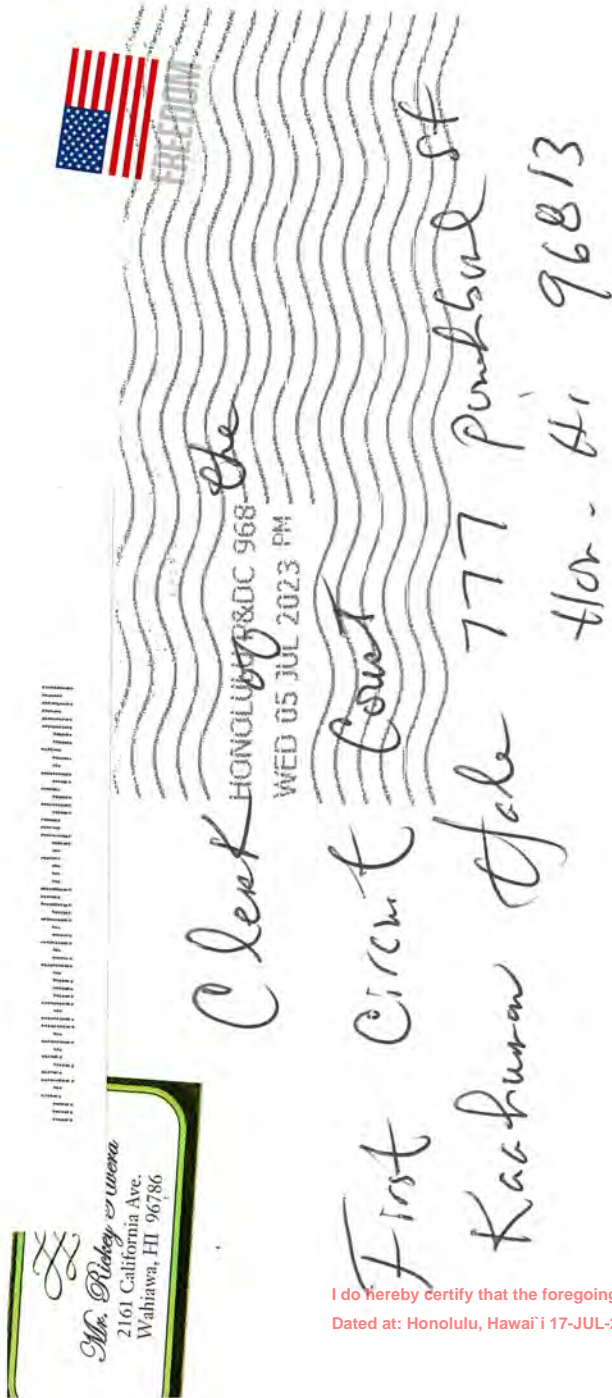 Mr. Rickey Rivera
2161 California Ave.
Wahiawa, HI 96786
FREEDOM
HONOLULU P&DC 968
WED 05 JUL 2023 PM
Clerk of the
First Circuit Court
Kaahumanu Hale 777 Punchbowl St
Hon. Hi 96813
I do hereby certify that the foregoing
Dated at: Honolulu, Hawai`i 17-JUL-